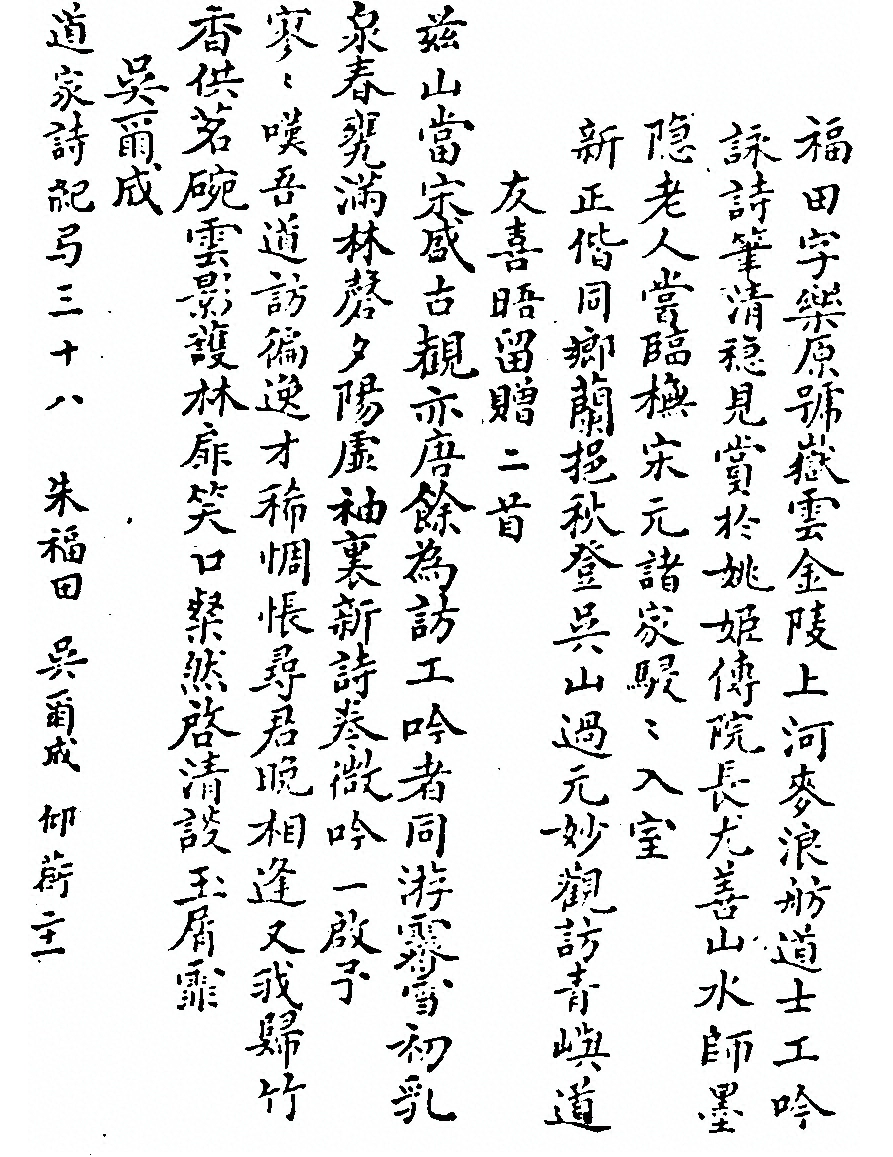 福田字樂原號嶽雲金陵上河麥浪舫道士工吟
詠詩筆清穏見賞於姚姬傳院長尤善山水師墨
隐老人嘗臨橅宋元諸家駸〻入室
新正偕同鄉蘭挹秋登吳山過元妙觀訪青嶼道
友喜晤留贈二首
茲山當宋盛古觀亦唐餘為訪工吟者同游霽雪初乳
泉春甕滿林磬夕陽虛袖裏新詩卷微吟一啟予
寥〻嘆吾道訪徧逸才稀惆悵尋君晚相逢又我歸竹
香供茗碗雲影護林扉笑口粲然啓清談玉屑霏
吳爾成
道家詩紀弓三十八 朱福田 吳爾成 邱蘅 二十一